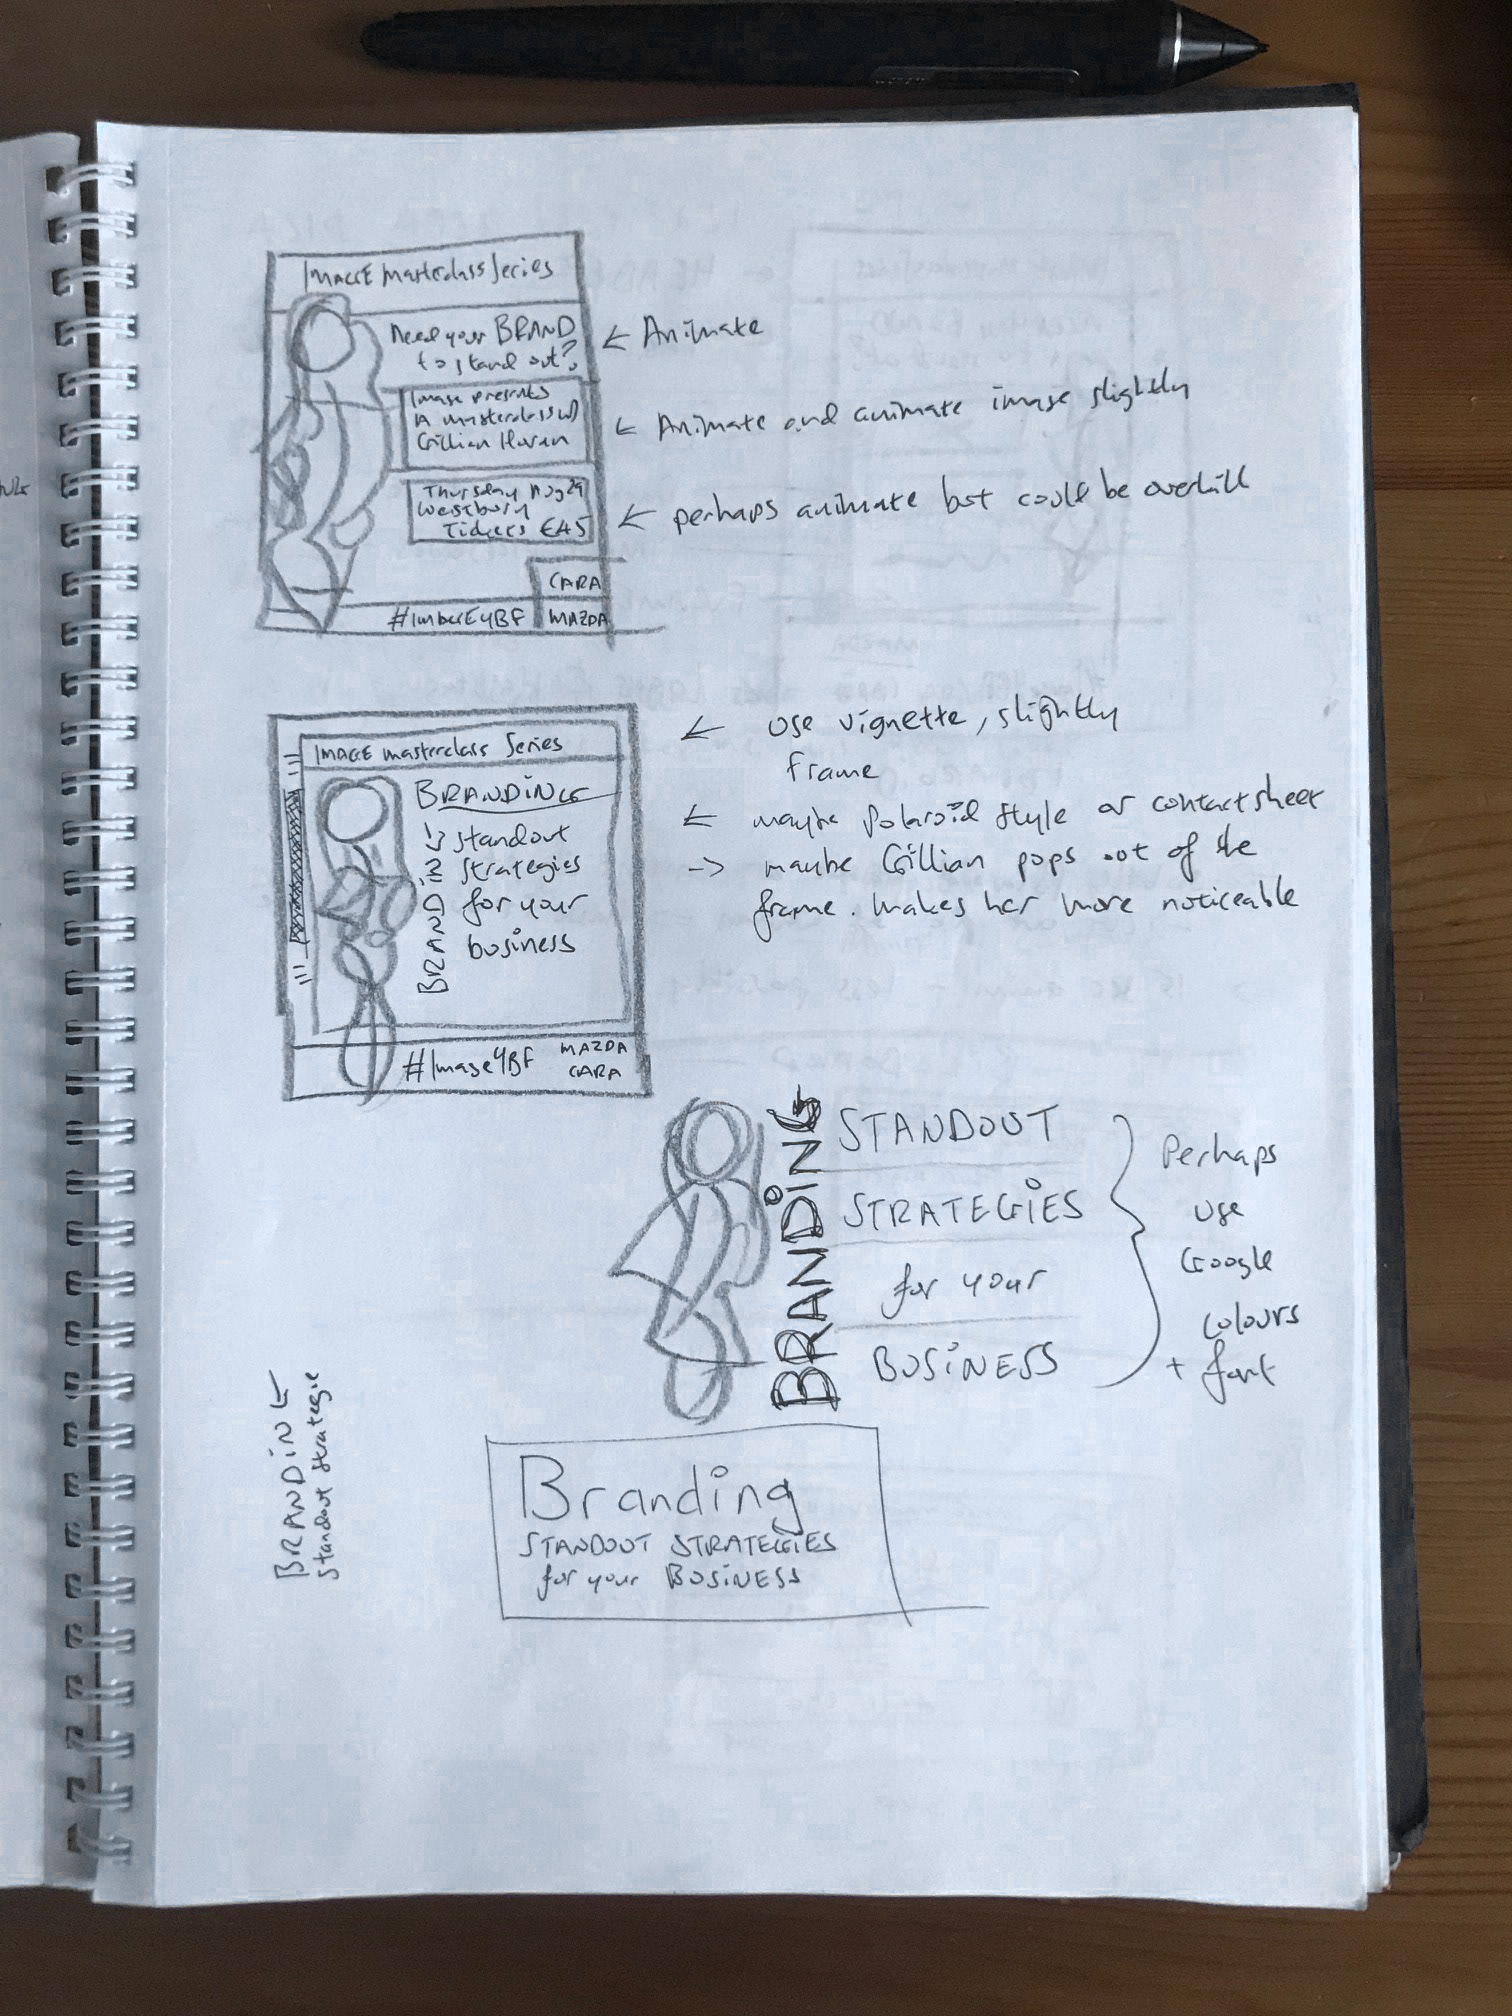 IMAGE masterclass Series
Need your BRAND
to stand out?
← Animate
Image presents
A masterclass w/
Gillian Horan
← Animate and animate image slightly
Thursday Aug 29
Westbury
Tickets €45
← perhaps animate but could be overkill
CARA
MAZDA
← use vignette, slightly
frame
IMAGE masterclass Series
BRANDING
standout
strategies
for your
business
BRAND
← maybe Polaroid style or contact sheet
→ maybe Gillian pops out of the
frame. makes her more noticeable
#Image4BF
MAZDA
CARA
BRANDING
STANDOUT
STRATEGIES
for your
BUSINESS
Perhaps
use
Google
colours
+ font
BRANDING
Standout strategie
Branding
STANDOUT STRATEGIES
for your BUSINESS